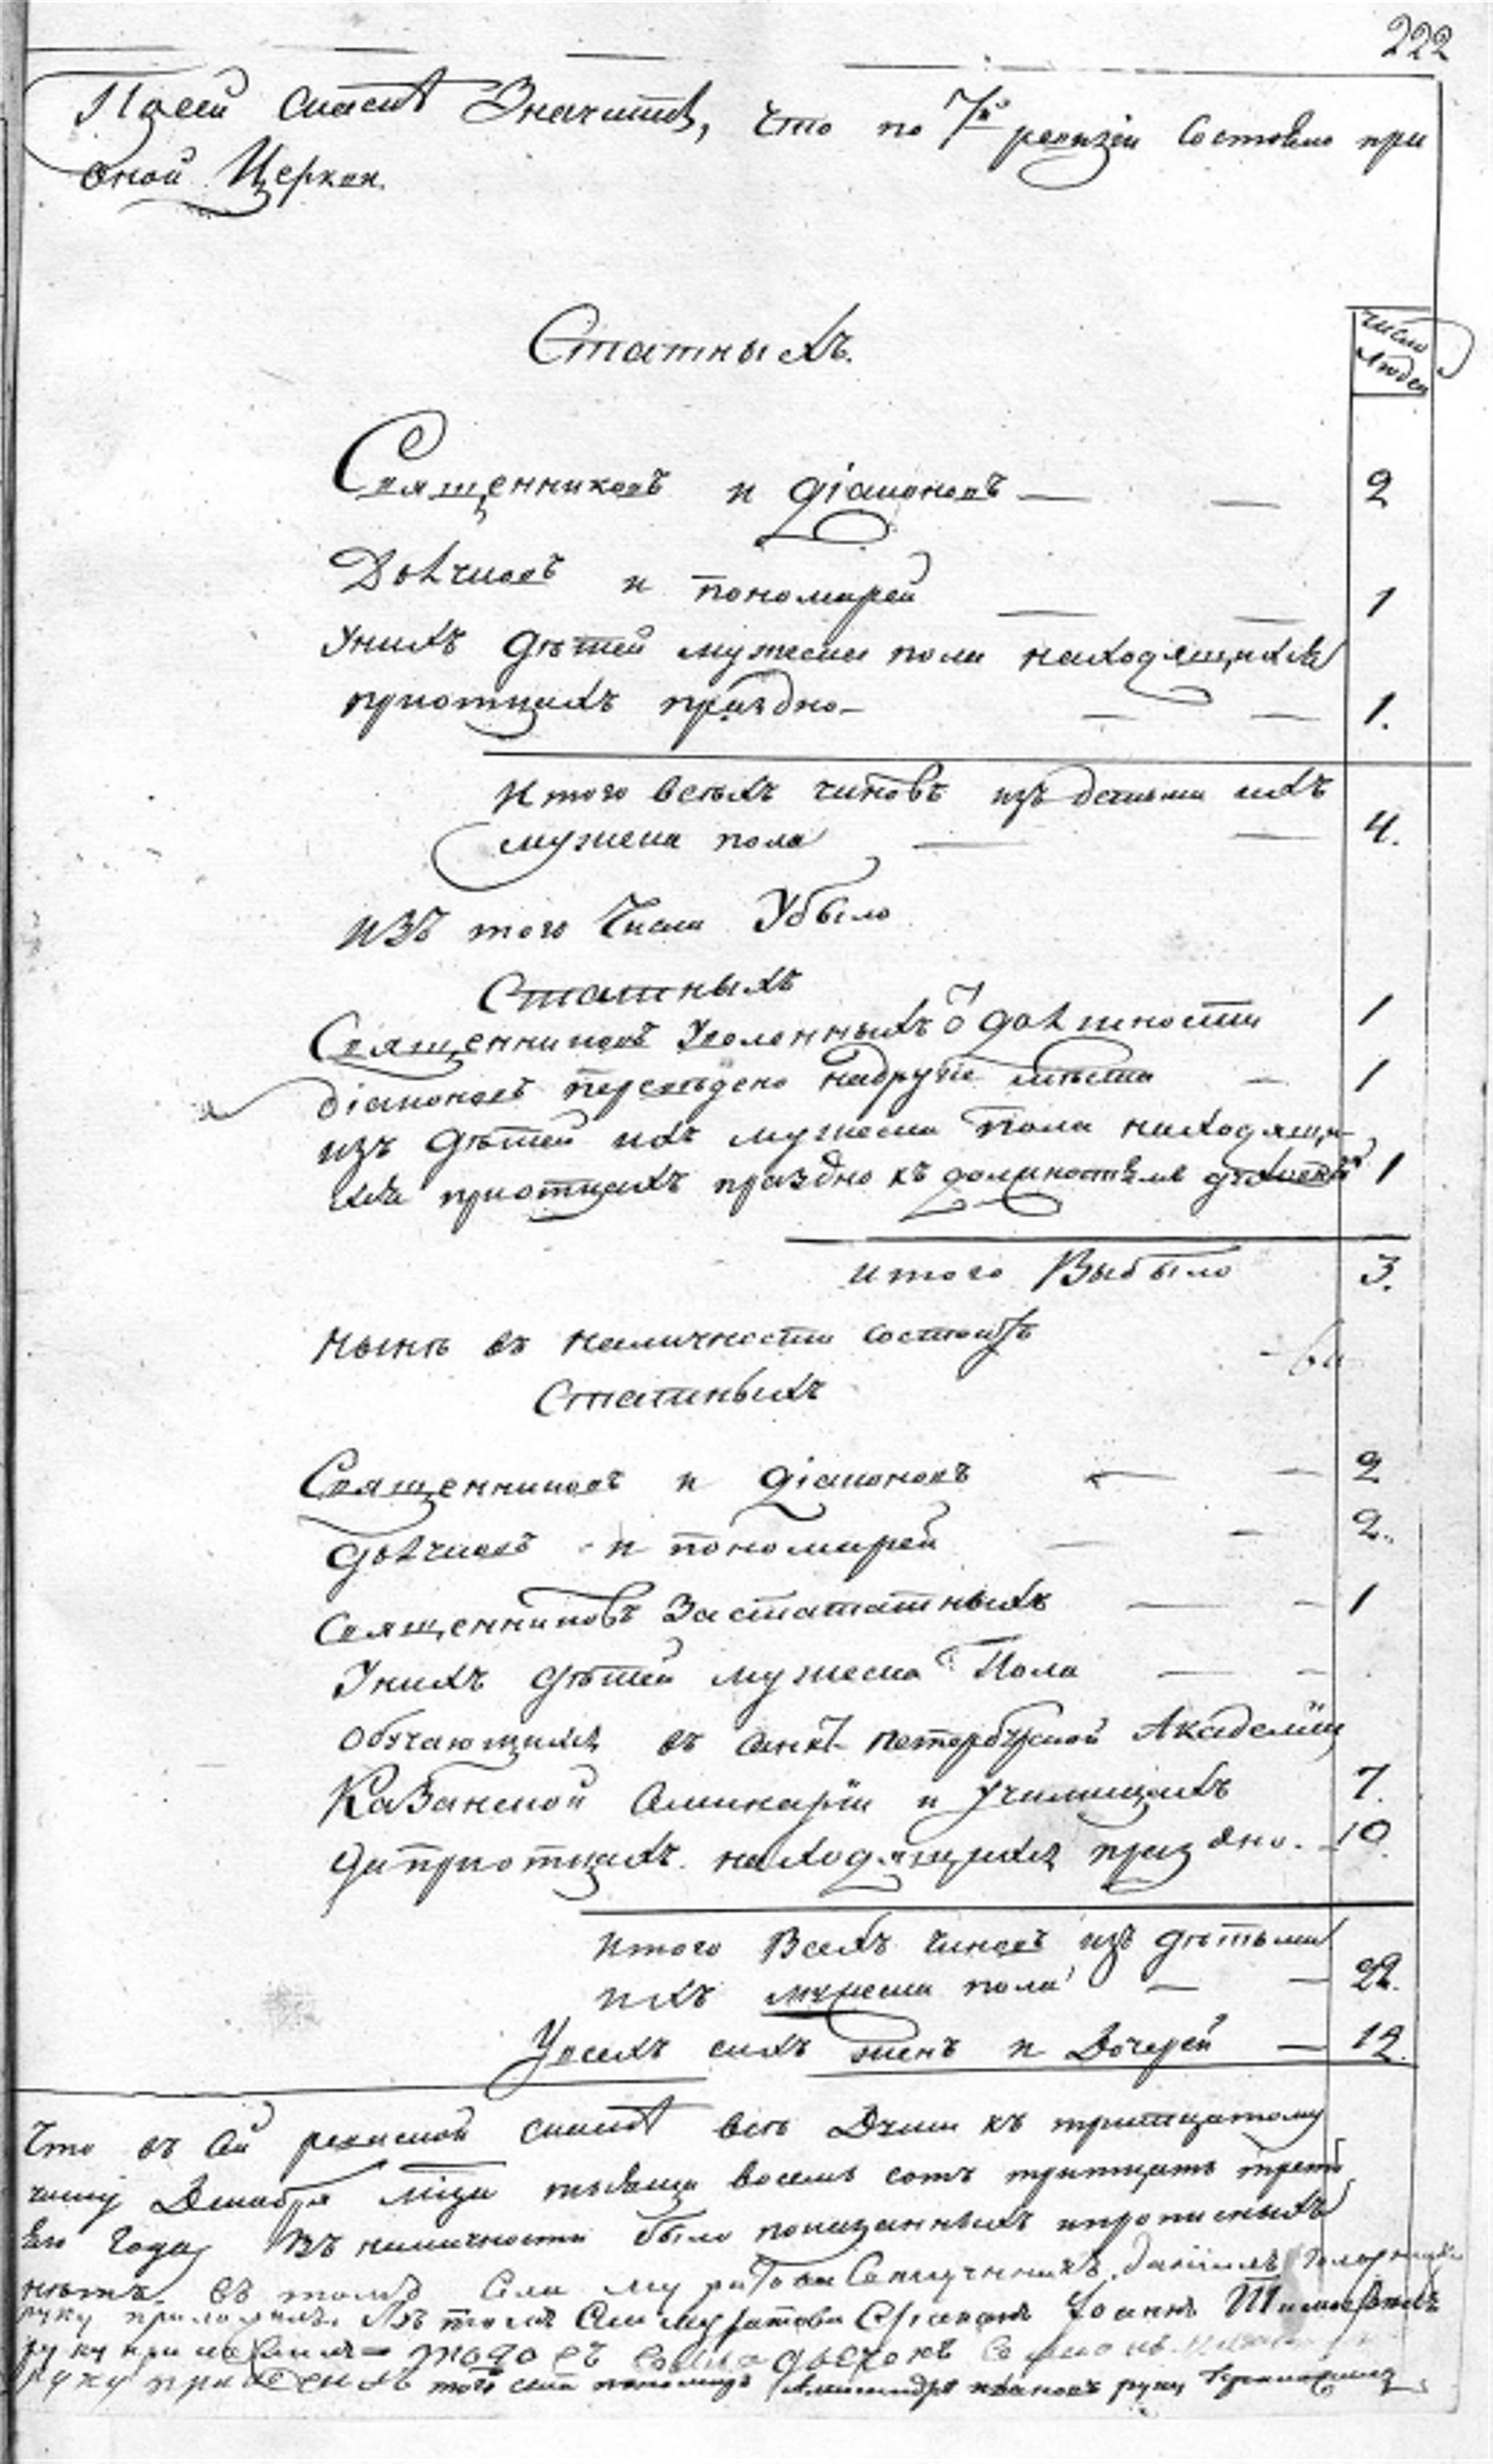 222
По сей скаске значится, что по 7й ревизіи состояло при
оной Церкви.
Статныхъ.
число
людей
Священниковъ и діаконовъ — — 2
Дьячковъ и пономарей — — 1
Унихъ дѣтей мужеска пола находящихся
приотцахъ праздно — — 1.
Итого всѣхъ чиновъ изъ детьми ихъ
мужеска пола — — 4.
Изъ того числа Убыло
Статныхъ
Священниковъ Уволенныхъ о должности 1
діаконовъ переведено надругіе мѣста — 1
изъ дѣтей ихъ мужеска пола находящи
хся приотцахъ праздно къ должностямъ 1
итого Выбыло 3.
Нынѣ въ наличности состоитъ
Статныхъ
Священниковъ и діаконовъ — — 2
дьячковъ и пономарей — — 2.
Священниковъ Застататныхъ — — 1
Унихъ дѣтей мужеска Пола — —
обучающихся въ Санкт петербурской Академіи
Казанской Семинаріи и училищахъ 7.
да приотцахъ находящихся праздно. — 10.
итого Всехъ чиновъ изъ дѣтьми
ихъ мужеска пола — — 22.
Увсехъ сихъ женъ и Дочерей — 12.
Что въ сей ревиской скаске всѣ Души къ тритцатому
числу Декабря мца тысяща восемь сотъ тритцать треть
яго Года въ наличности было показанныхъ ипрописныхъ
нѣтъ. въ томъ Села Муратова Священникъ Даніилъ
руку приложилъ. Въ томъ Села Муратова Діаконъ Іоаннъ
руку приложилъ = того въ села дьечокъ
руку приложилъ того села пономарь Александръ Ивановъ руку приложилъ